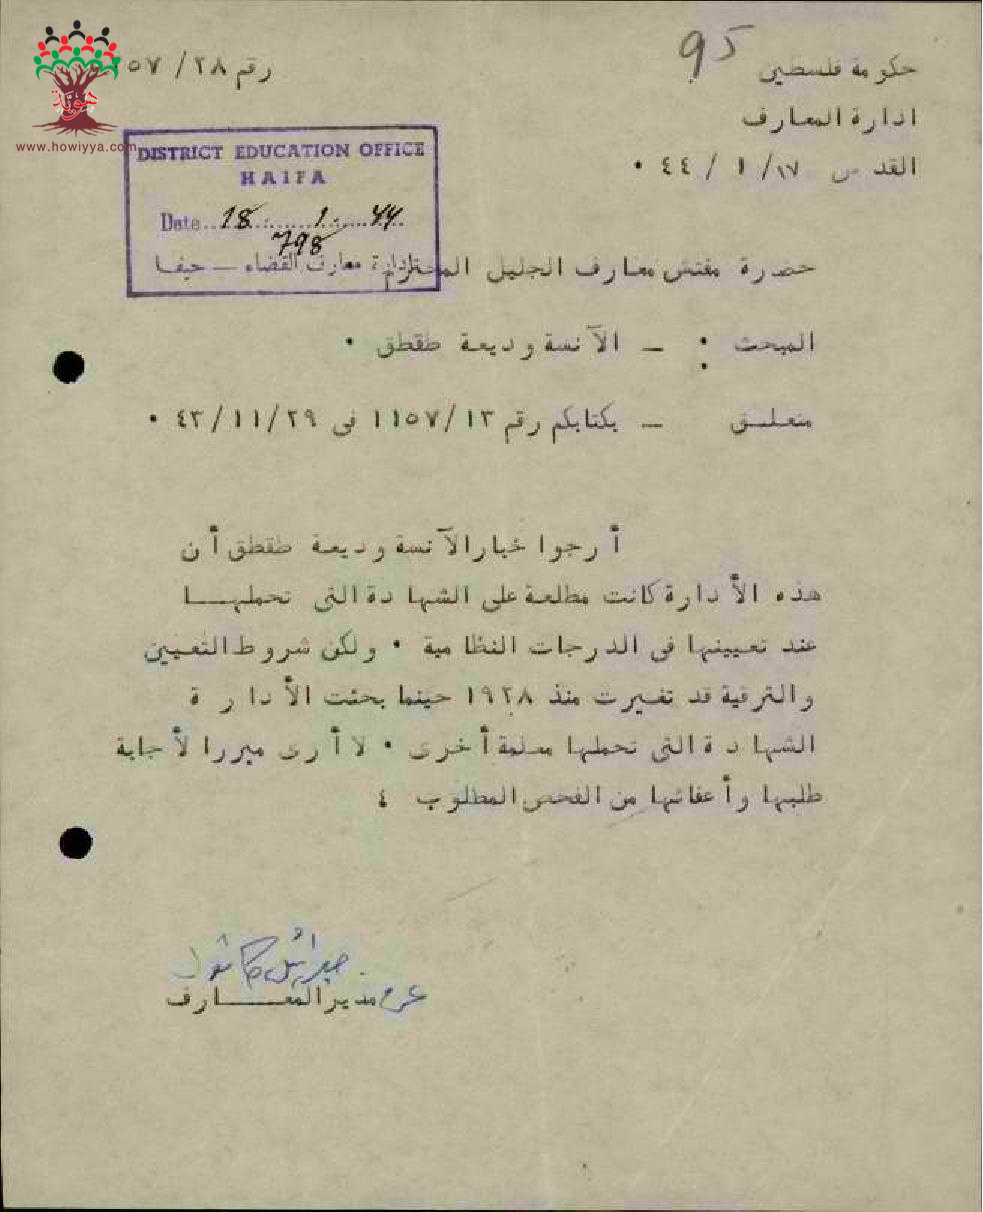 95
حكومة فلسطين
ادارة المعارف
القدس ١٧/ ١ / ٤٤ ٠
رقم ٢٨/
هوية
www.howiyya.com
DISTRICT EDUCATION OFFICE
HAIFA
Date 18 . 1 . 44
798
ادارة معارف القضاء — حيفا
حضرة مفتش معارف الجليل المحترم
المبحث : — الآنسة وديعة طقطق ٠
متعلـق — بكتابكم رقم ١١٥٧/١٣ فى ٤٣/١١/٢٩ ٠
أرجوا خبار الآنسة وديعة طقطق أن
هذه الأدارة كانت مطلعة على الشهادة التى تحملهـــا
عند تعيينها فى الدرجات النظامية ٠ ولكن شروط التعيين
والترقية قد تغيرت منذ ١٩٢٨ حينما بحثت الأدارة
الشهادة التى تحملها معلمة أخرى ٠ لا أرى مبررا لأجابة
طلبها وأعفائها من الفحص المطلوب ٤
جبرائيل كاتول
عن مدير المعــــارف